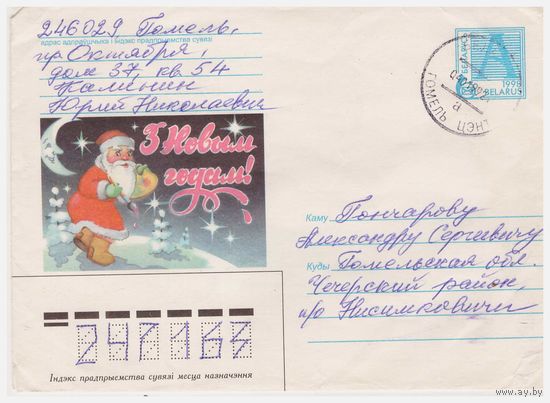 246029 Гомель,
адрас адпраўшчыка і індэкс прадпрыемства сувязі
пр Октября,
дом 37, кв. 54
Калинин
Юрий Николаевич
А
БЕЛАРУСЬ
1993
BELARUS
ГОМЕЛЬ
а
З Новым
годам!
Каму Гончарову
Александру Сергеевичу
Куды Гомельская обл.
Чечерский район,
п/о Нисимковичи
247163
Індэкс прадпрыемства сувязі месца назначэння
www.ay.by